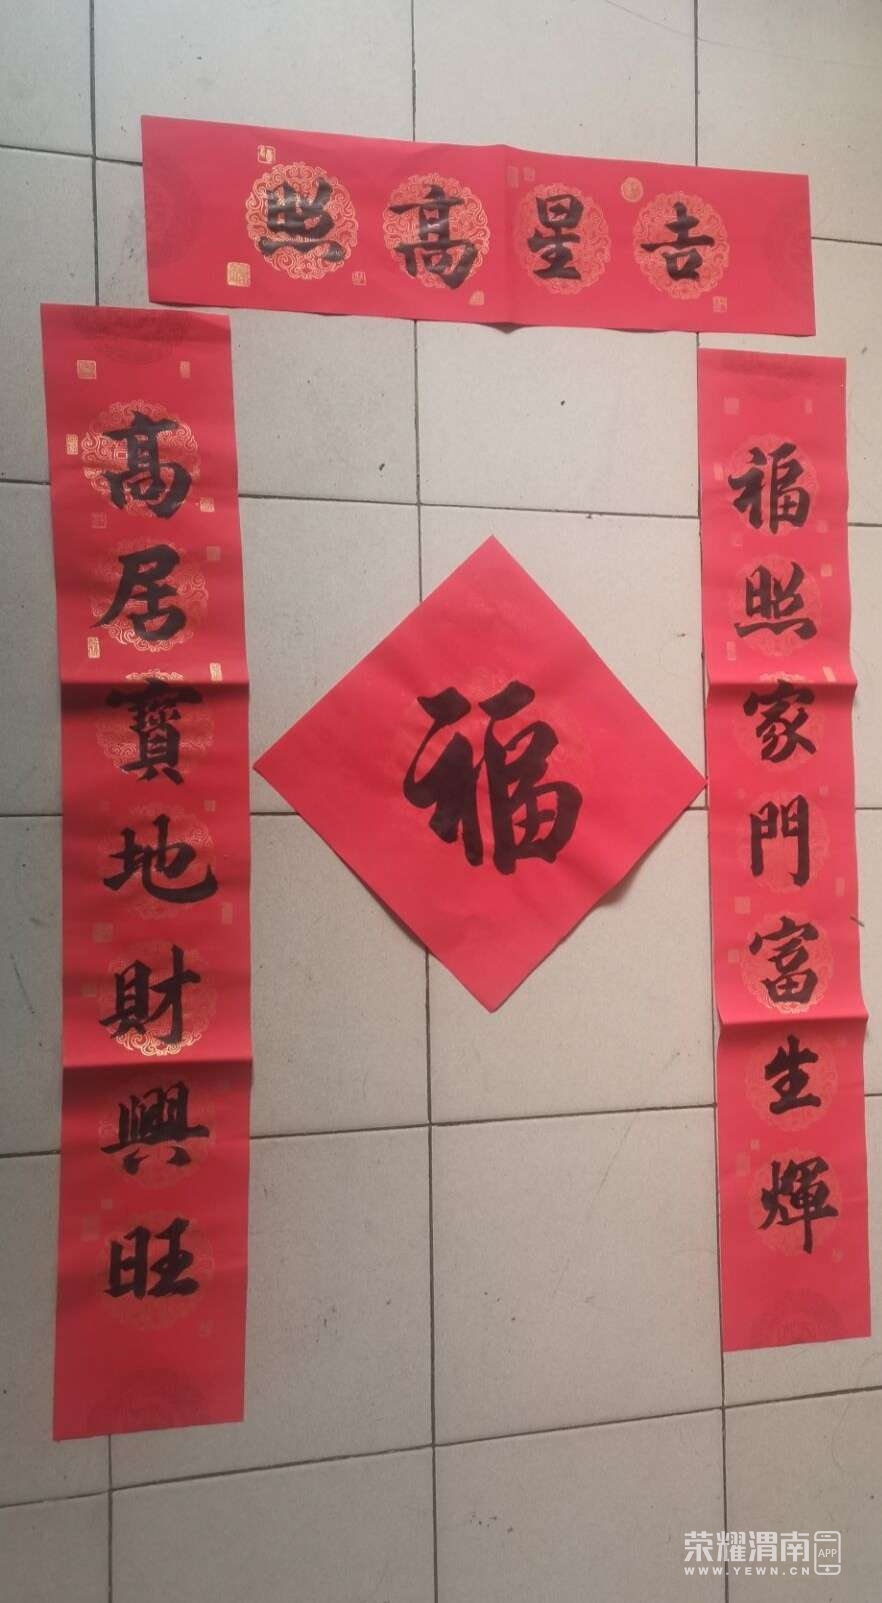 吉星高照
福照家門富生輝
高居寶地財興旺
福
荣耀渭南 APP
WWW.YEWN.CN